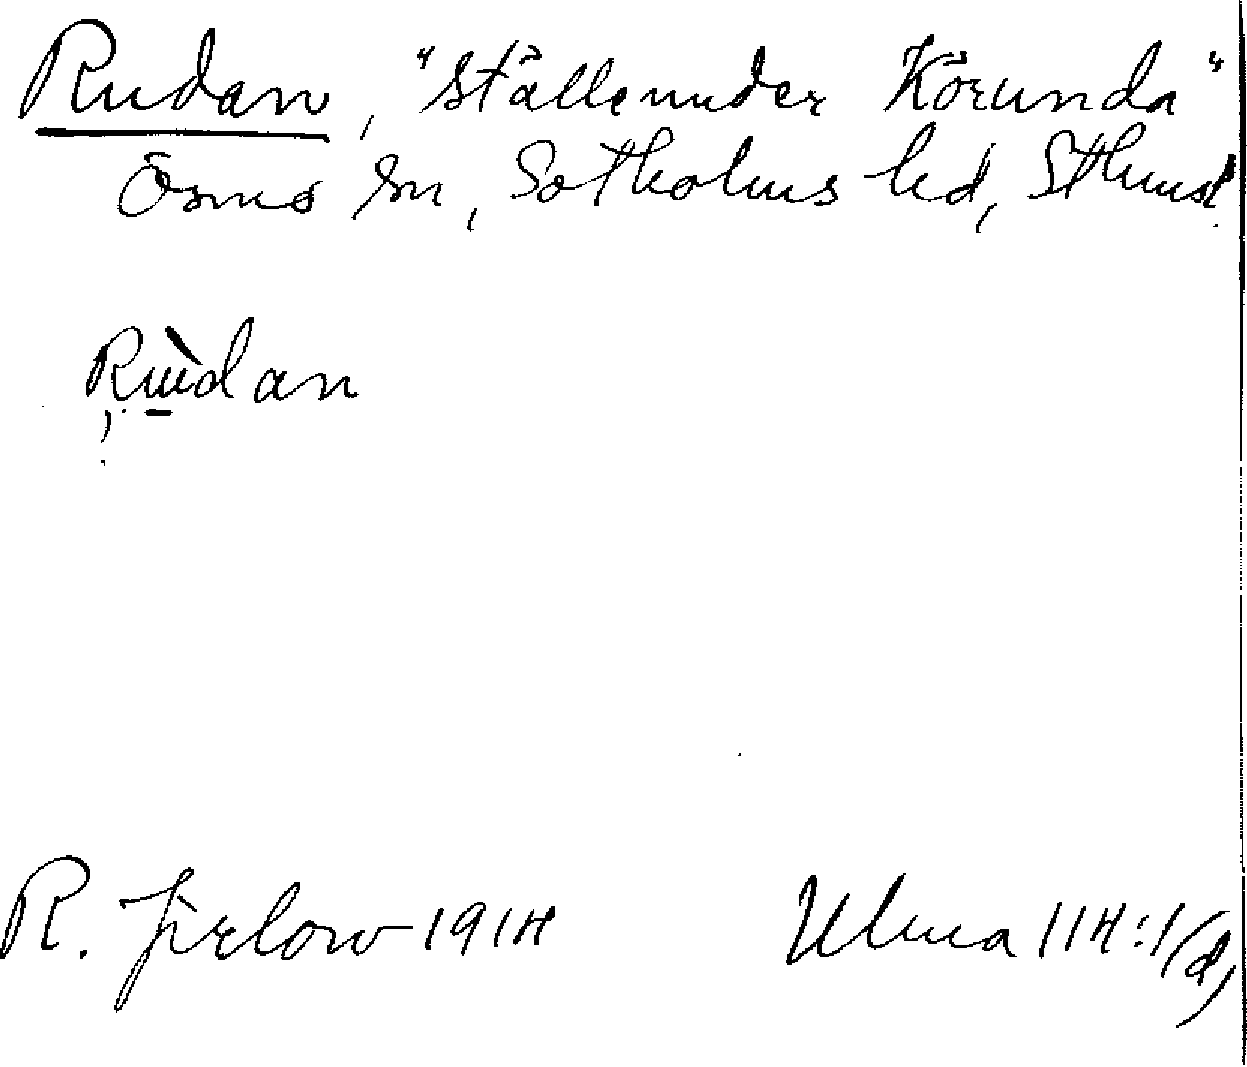 Rudan, "ställe under Körunda"
Ösmo sn, Sotholms hd, Sthms l.
Rudan
R. Jirlow 1914
Ulma 114:1 (d)